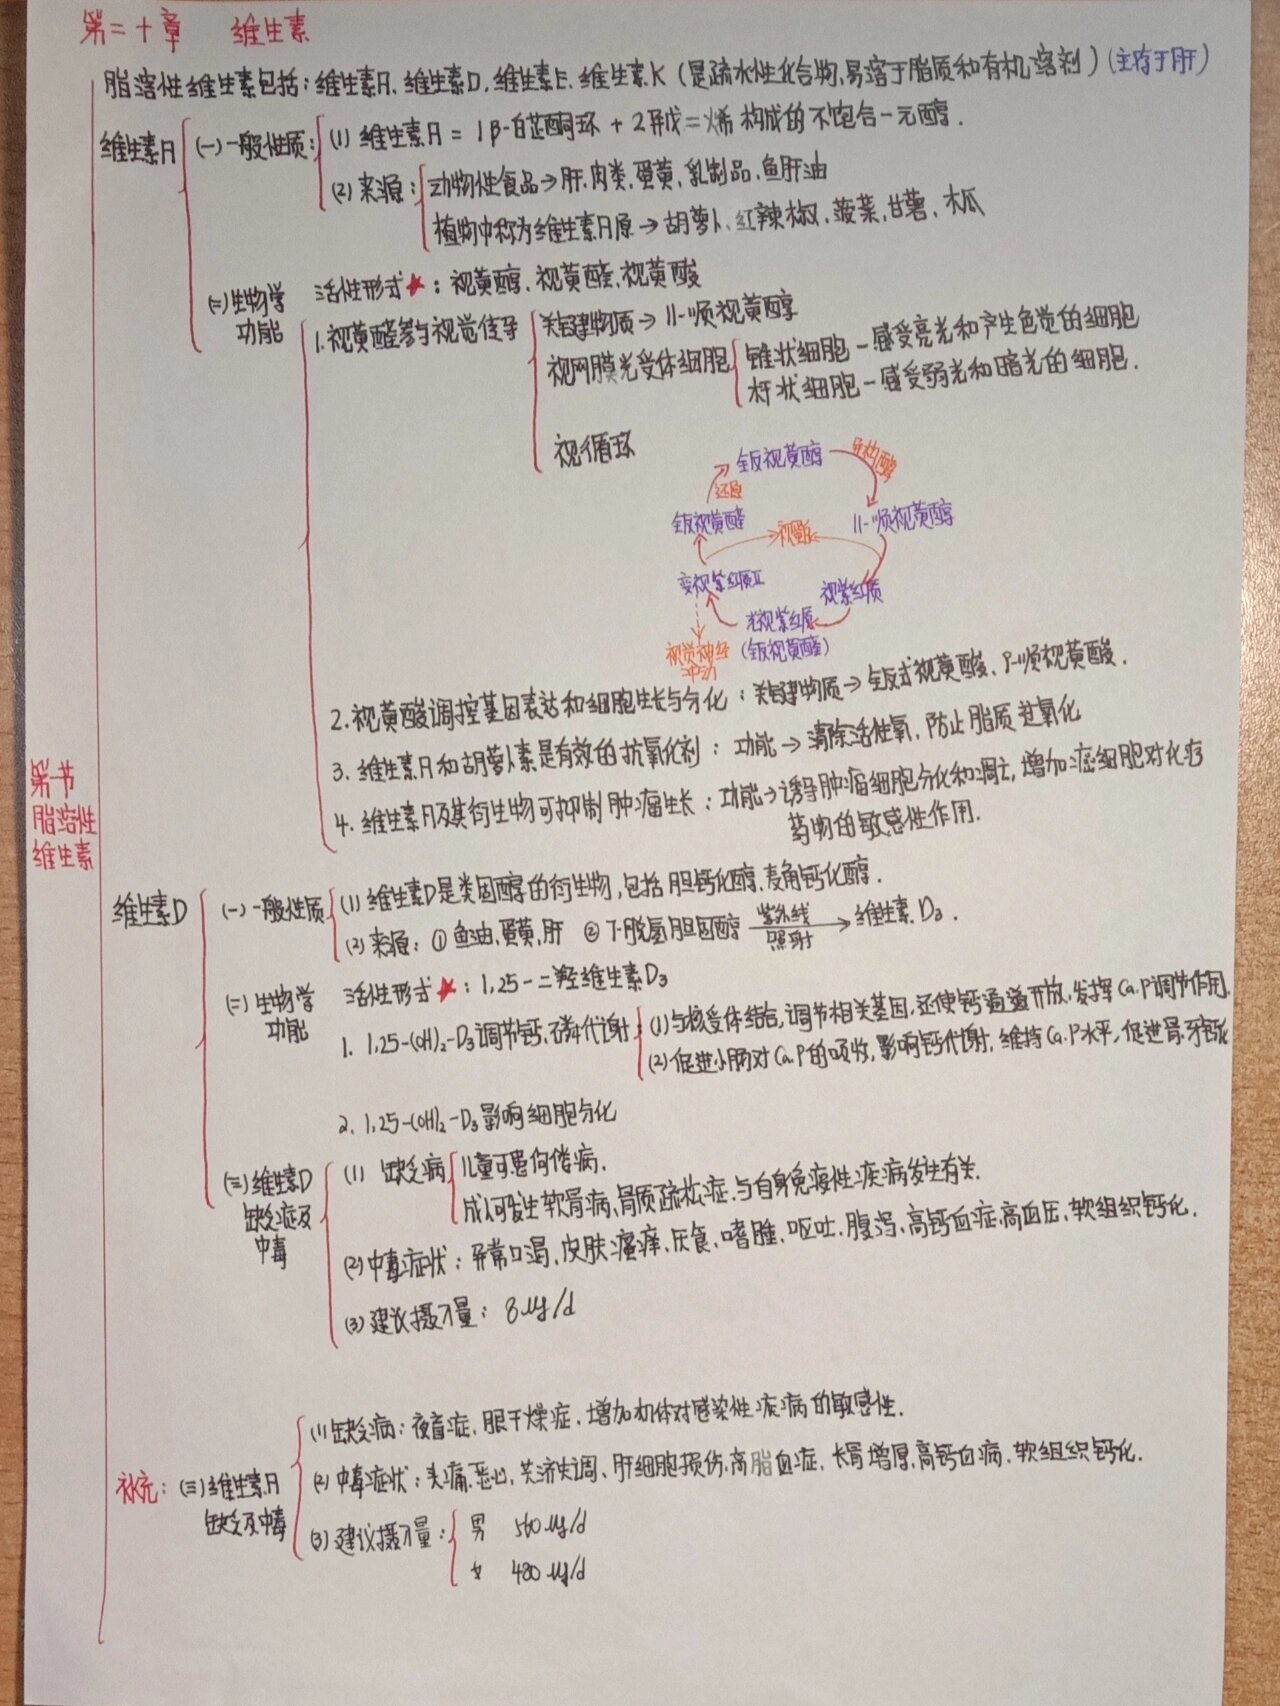 第二十章 维生素
脂溶性维生素包括：维生素A、维生素D、维生素E、维生素K（是疏水性化合物，易溶于脂质和有机溶剂）(主存于肝)
维生素A
(一)一般性质：
(1) 维生素A = 1β-白芷酮环 + 2异戊二烯 构成的不饱合一元醇．
(2) 来源：
动物性食品→肝、肉类、蛋黄、乳制品、鱼肝油
植物中称为维生素A原→胡萝卜、红辣椒、菠菜、甘薯、木瓜
(二)生物学
功能
活性形式★：视黄醇、视黄醛、视黄酸
1.视黄醛参与视觉传导
关键物质→11-顺视黄醇
视网膜光受体细胞
锥状细胞－感受亮光和产生色觉的细胞
杆状细胞－感受弱光和暗光的细胞．
视循环
全反视黄醇
异构酶
还原
全反视黄醛
视蛋白
11-顺视黄醇
变视紫红质II
视紫红质
光视紫红质
(全反视黄醛)
视觉神经
冲动
2.视黄酸调控基因表达和细胞生长与分化：关键物质→全反式视黄酸、9-顺视黄酸．
3.维生素A和胡萝卜素是有效的抗氧化剂：功能→清除活性氧，防止脂质过氧化
4.维生素A及其衍生物可抑制肿瘤生长：功能→诱导肿瘤细胞分化和凋亡，增加癌细胞对化疗
药物的敏感性作用．
第一节
脂溶性
维生素
维生素D
(一)一般性质
(1)维生素D是类固醇的衍生物，包括胆钙化醇、麦角钙化醇．
(2)来源：①鱼油、蛋黄、肝 ②7-脱氢胆固醇 紫外线 照射 → 维生素D₃．
(二)生物学
功能
活性形式★：1,25-二羟维生素D₃
1. 1,25-(OH)₂-D₃调节钙、磷代谢
(1)与核受体结合，调节相关基因，还使钙通道开放，发挥Ca.P调节作用．
(2)促进小肠对Ca.P的吸收，影响钙代谢，维持Ca.P水平，促进骨、牙钙化
2. 1,25-(OH)₂-D₃影响细胞分化
(三)维生素D
缺乏症及
中毒
(1) 缺乏病
儿童可患佝偻病．
成人可发生软骨病、骨质疏松症、与自身免疫性疾病发生有关．
(2)中毒症状：异常口渴、皮肤瘙痒、厌食、嗜睡、呕吐、腹泻、高钙血症、高血压、软组织钙化．
(3)建议摄入量：8μg/d
补充：(三)维生素A
缺乏及中毒
(1)缺乏病：夜盲症、眼干燥症、增加机体对感染性疾病的敏感性．
(2)中毒症状：头痛、恶心、共济失调、肝细胞损伤、高脂血症、长骨增厚、高钙血病、软组织钙化．
(3)建议摄入量：
男 560μg/d
女 480μg/d